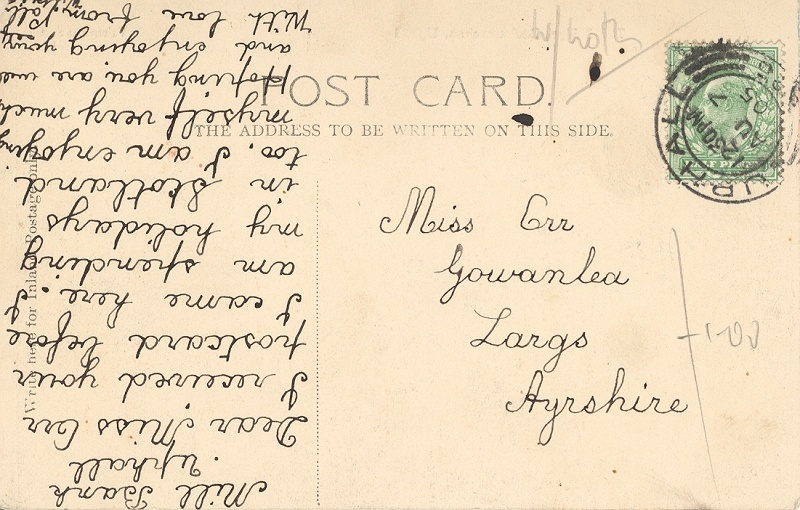 POST CARD.
THE ADDRESS TO BE WRITTEN ON THIS SIDE.
Write here for Inland Postage only
Miss Orr
Gowanlea
Largs
Ayrshire
Mill Bank
Uphall.
Dear Miss Orr
I received your
postcard before
I came here. I
am spending
my holidays
in Scotland
too. I am enjoying
myself very much
Hoping you are well
and enjoying your
With love from
UPHALL
1.00